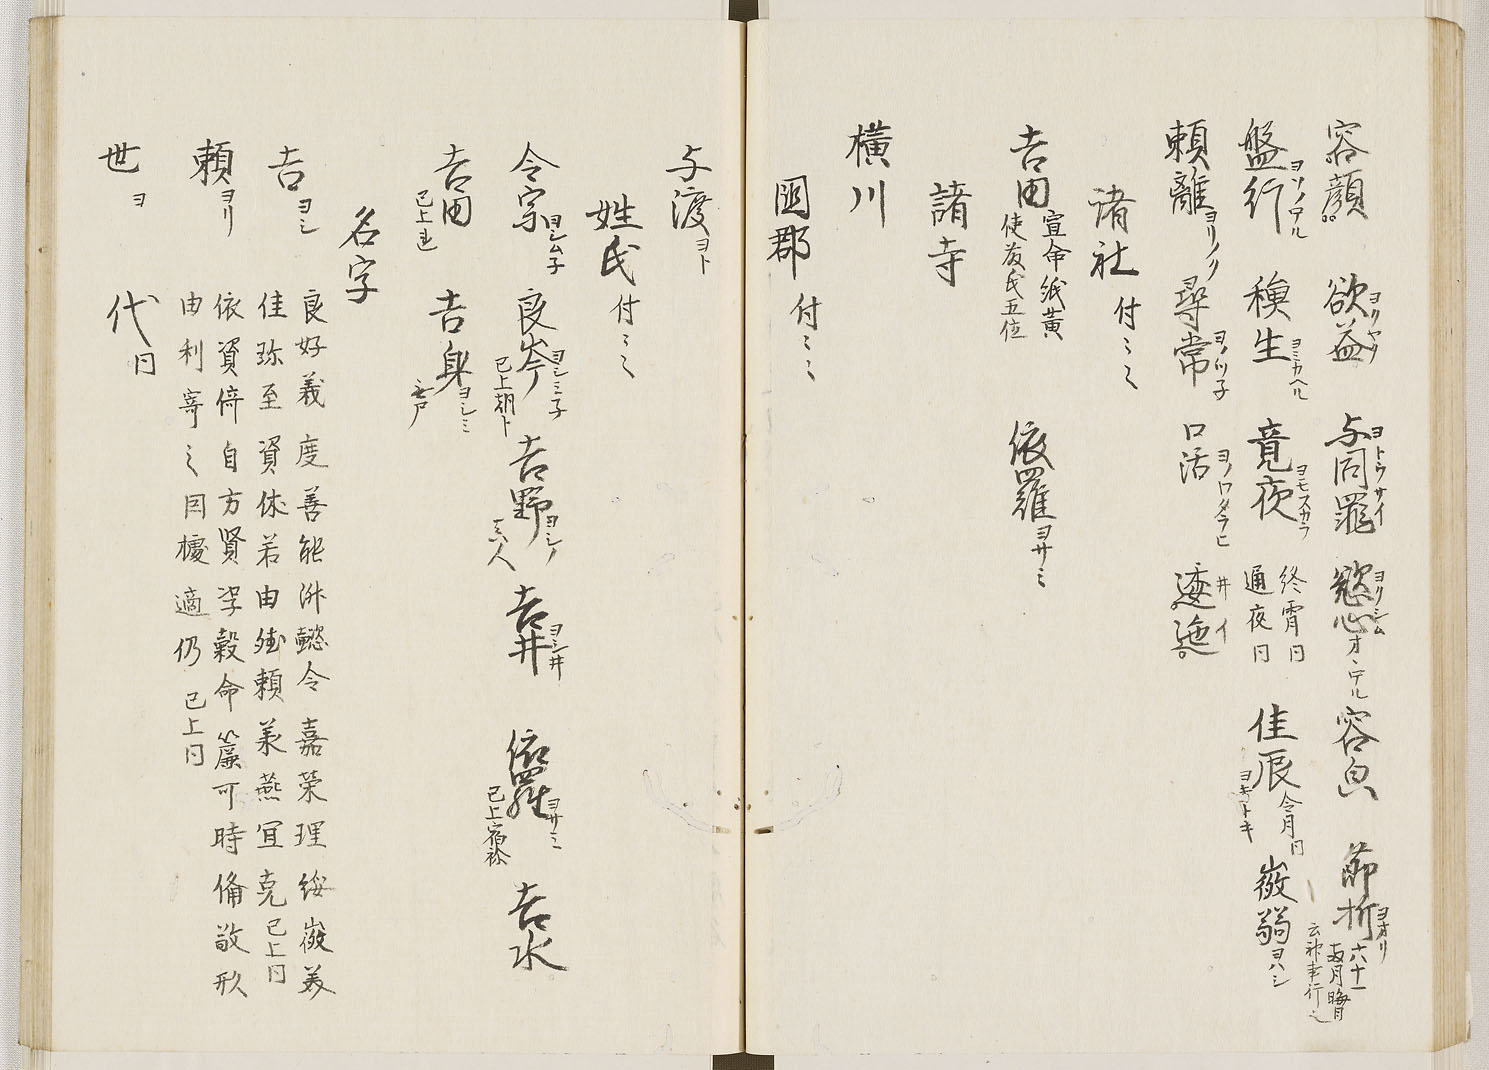 容顔 欲益ヨクヤク 与同罪ヨトウサイ 慾心ヨクシム オホヰテル 容皃 節折ヨオリ 六十一両月晦日云神事行之
盤行ヨソノアル 穐生ヨミカヘル 竟夜ヨモスカラ 終宵同 通夜同 佳辰ヨキトキ 令月同 嶶翳ヨハシ
頼離ヨリノク 尋常ヨノツ子 口活ヨノワタラヒ 逶迤井イ
諸社 付ミミ
吉田 宣命紙黄 使藤氏五位 依羅ヨサミ
諸寺
横川
國郡 付ミミ
与渡ヨト
姓氏 付ミミ
令宗ヨシム子 良岑ヨシミ子 已上朝ト 吉野ヨシノ 真人 吉井ヨシ井 依羅ヨサミ 已上宿祢 吉水
吉田 已上連 吉身ヨシミ 無尸
名字
吉ヨシ 良好義度善能淑懿令嘉栄理綏嶶美
佳珎至資休若由頼義燕宜克 已上同
頼ヨリ 依資倚自方賢穀命簾可時備敬形
由利寄ミ因適仍 已上同
世ヨ 代同